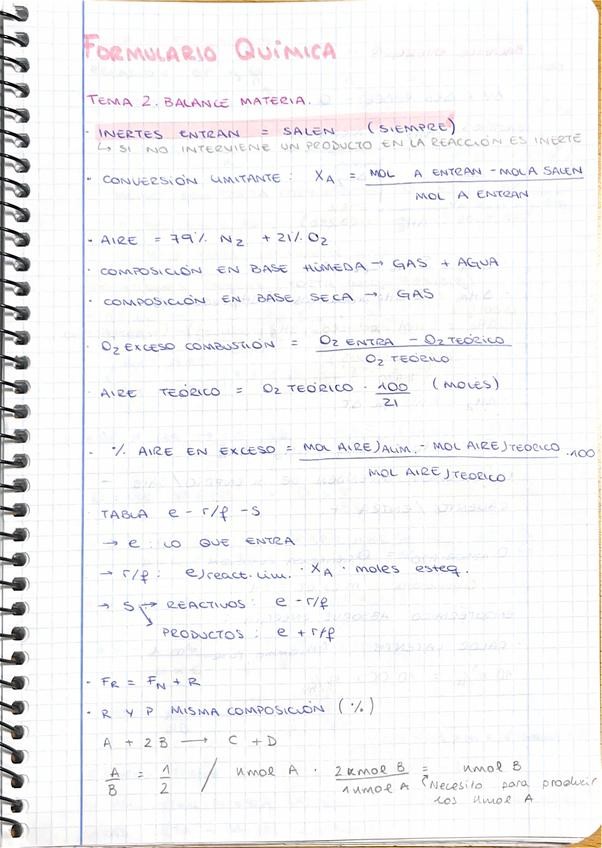 FORMULARIO QUÍMICA
TEMA 2. BALANCE MATERIA.
· INERTES ENTRAN = SALEN (SIEMPRE)
↳ SI NO INTERVIENE UN PRODUCTO EN LA REACCIÓN ES INERTE
· CONVERSIÓN LIMITANTE: XA = MOL A ENTRAN - MOL A SALEN / MOL A ENTRAN
· AIRE = 79% N2 + 21% O2
· COMPOSICIÓN EN BASE HÚMEDA → GAS + AGUA
· COMPOSICIÓN EN BASE SECA → GAS
· O2 EXCESO COMBUSTIÓN = O2 ENTRA - O2 TEÓRICO / O2 TEÓRICO
· AIRE TEÓRICO = O2 TEÓRICO · 100/21 (MOLES)
· % AIRE EN EXCESO = MOL AIRE)ALIM. - MOL AIRE)TEORICO / MOL AIRE)TEORICO · 100
· TABLA e - r/f - S
→ e: LO QUE ENTRA
→ r/f: e)react.lim. · XA · moles esteq.
→ S → REACTIVOS: e - r/f
↘ PRODUCTOS: e + r/f
· FR = FN + R
· R Y P MISMA COMPOSICIÓN (%)
A + 2B → C + D
A/B = 1/2 / kmol A · 2 kmol B / 1 kmol A = kmol B
↱ Necesito para producir
los kmol A